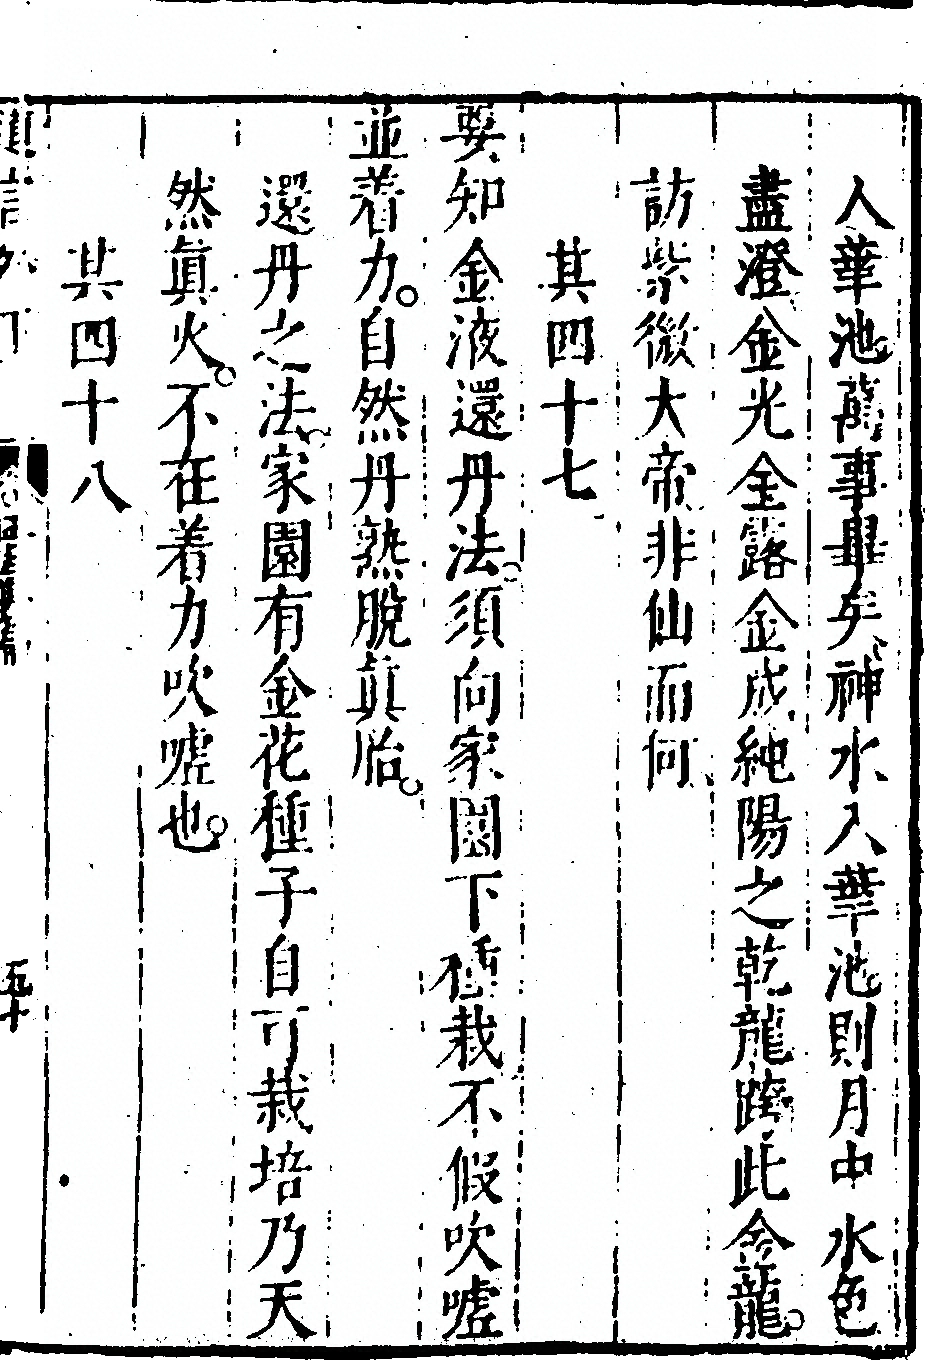 入華池萬事畢矣神水入華池則月中水色
盡澄金光金露金成純陽之乾龍跨此金龍
訪紫微大帝非仙而何
其四十七
要知金液還丹法須向家園下種栽不假吹噓
並着力自然丹熟脫眞胎
還丹之法家園有金花種子自可栽培乃天
然眞火不在着力吹噓也
其四十八
五十